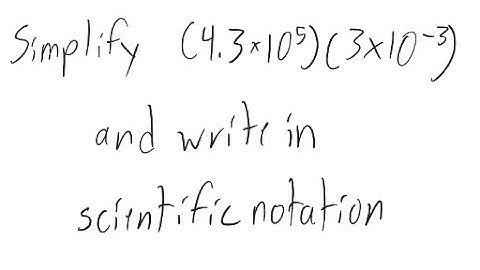 Simplify (4.3×10⁵)(3×10⁻³)
and write in
scientific notation